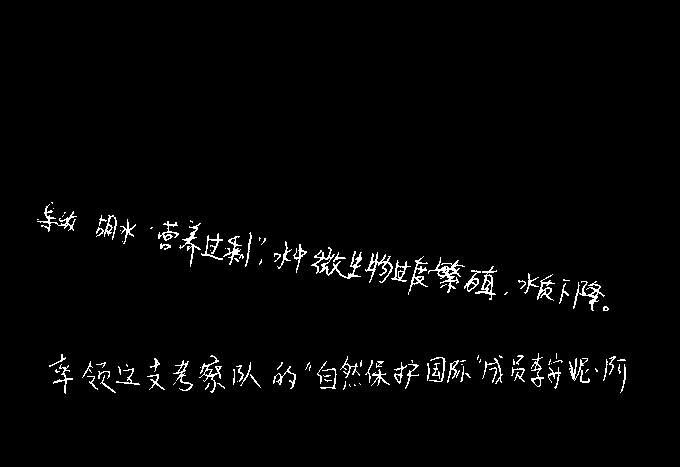 导致湖水“营养过剩”,水中微生物过度繁殖,水质下降。
率领这支考察队的“自然保护国际”成员李安妮·阿